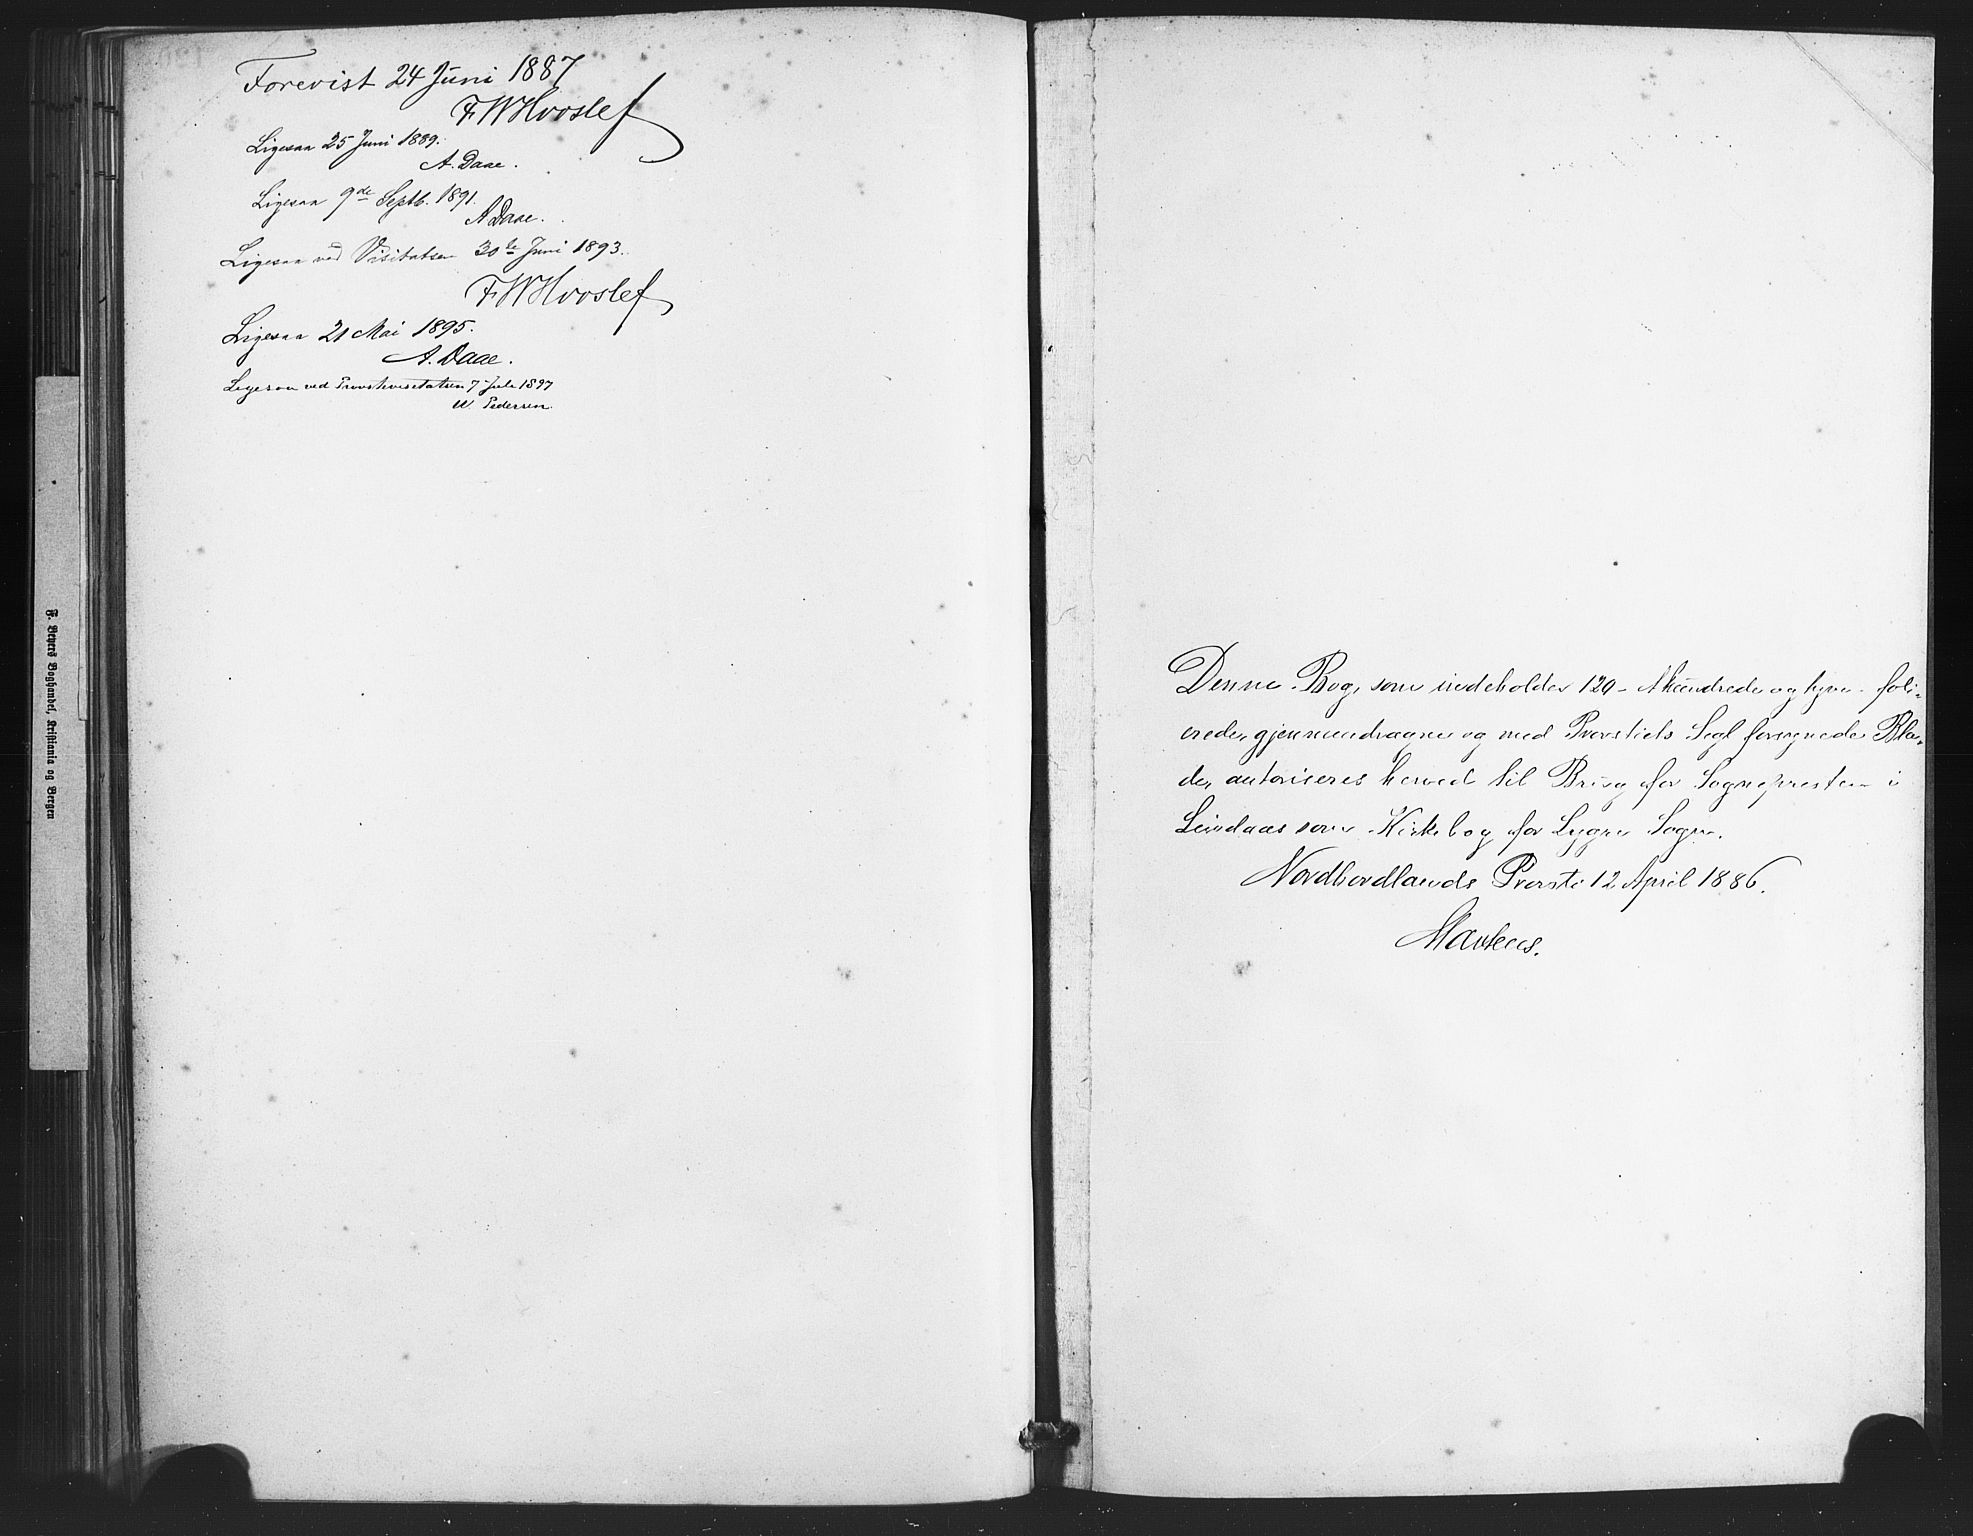 Forevist 24 Juni 1887
FWHvoslef
Ligesaa 25 Juni 1889.
A. Daae.
Ligesaa 9de Septb. 1891.
A Daae.
Ligesaa ved Visitatsen 30te Juni 1893.
FWHvoslef
Ligesaa 21 Mai 1895.
A. Daae.
Ligesaa ved Provstevisitatsen 7 Juli 1897
W. Pedersen.
F. Beyers Boghandel, Kristiania og Bergen
Denne Bog, som indeholder 120 - Et hundrede og tyve - foli-
erede, gjennemdragne og med Provstiets Segl forsynede Bla-
de, autoriseres herved til Brug for Sognepresten i
Lindaas som Kirkebog for Lygre Sogn.
Nordhordlands Provsti 12 April 1886.